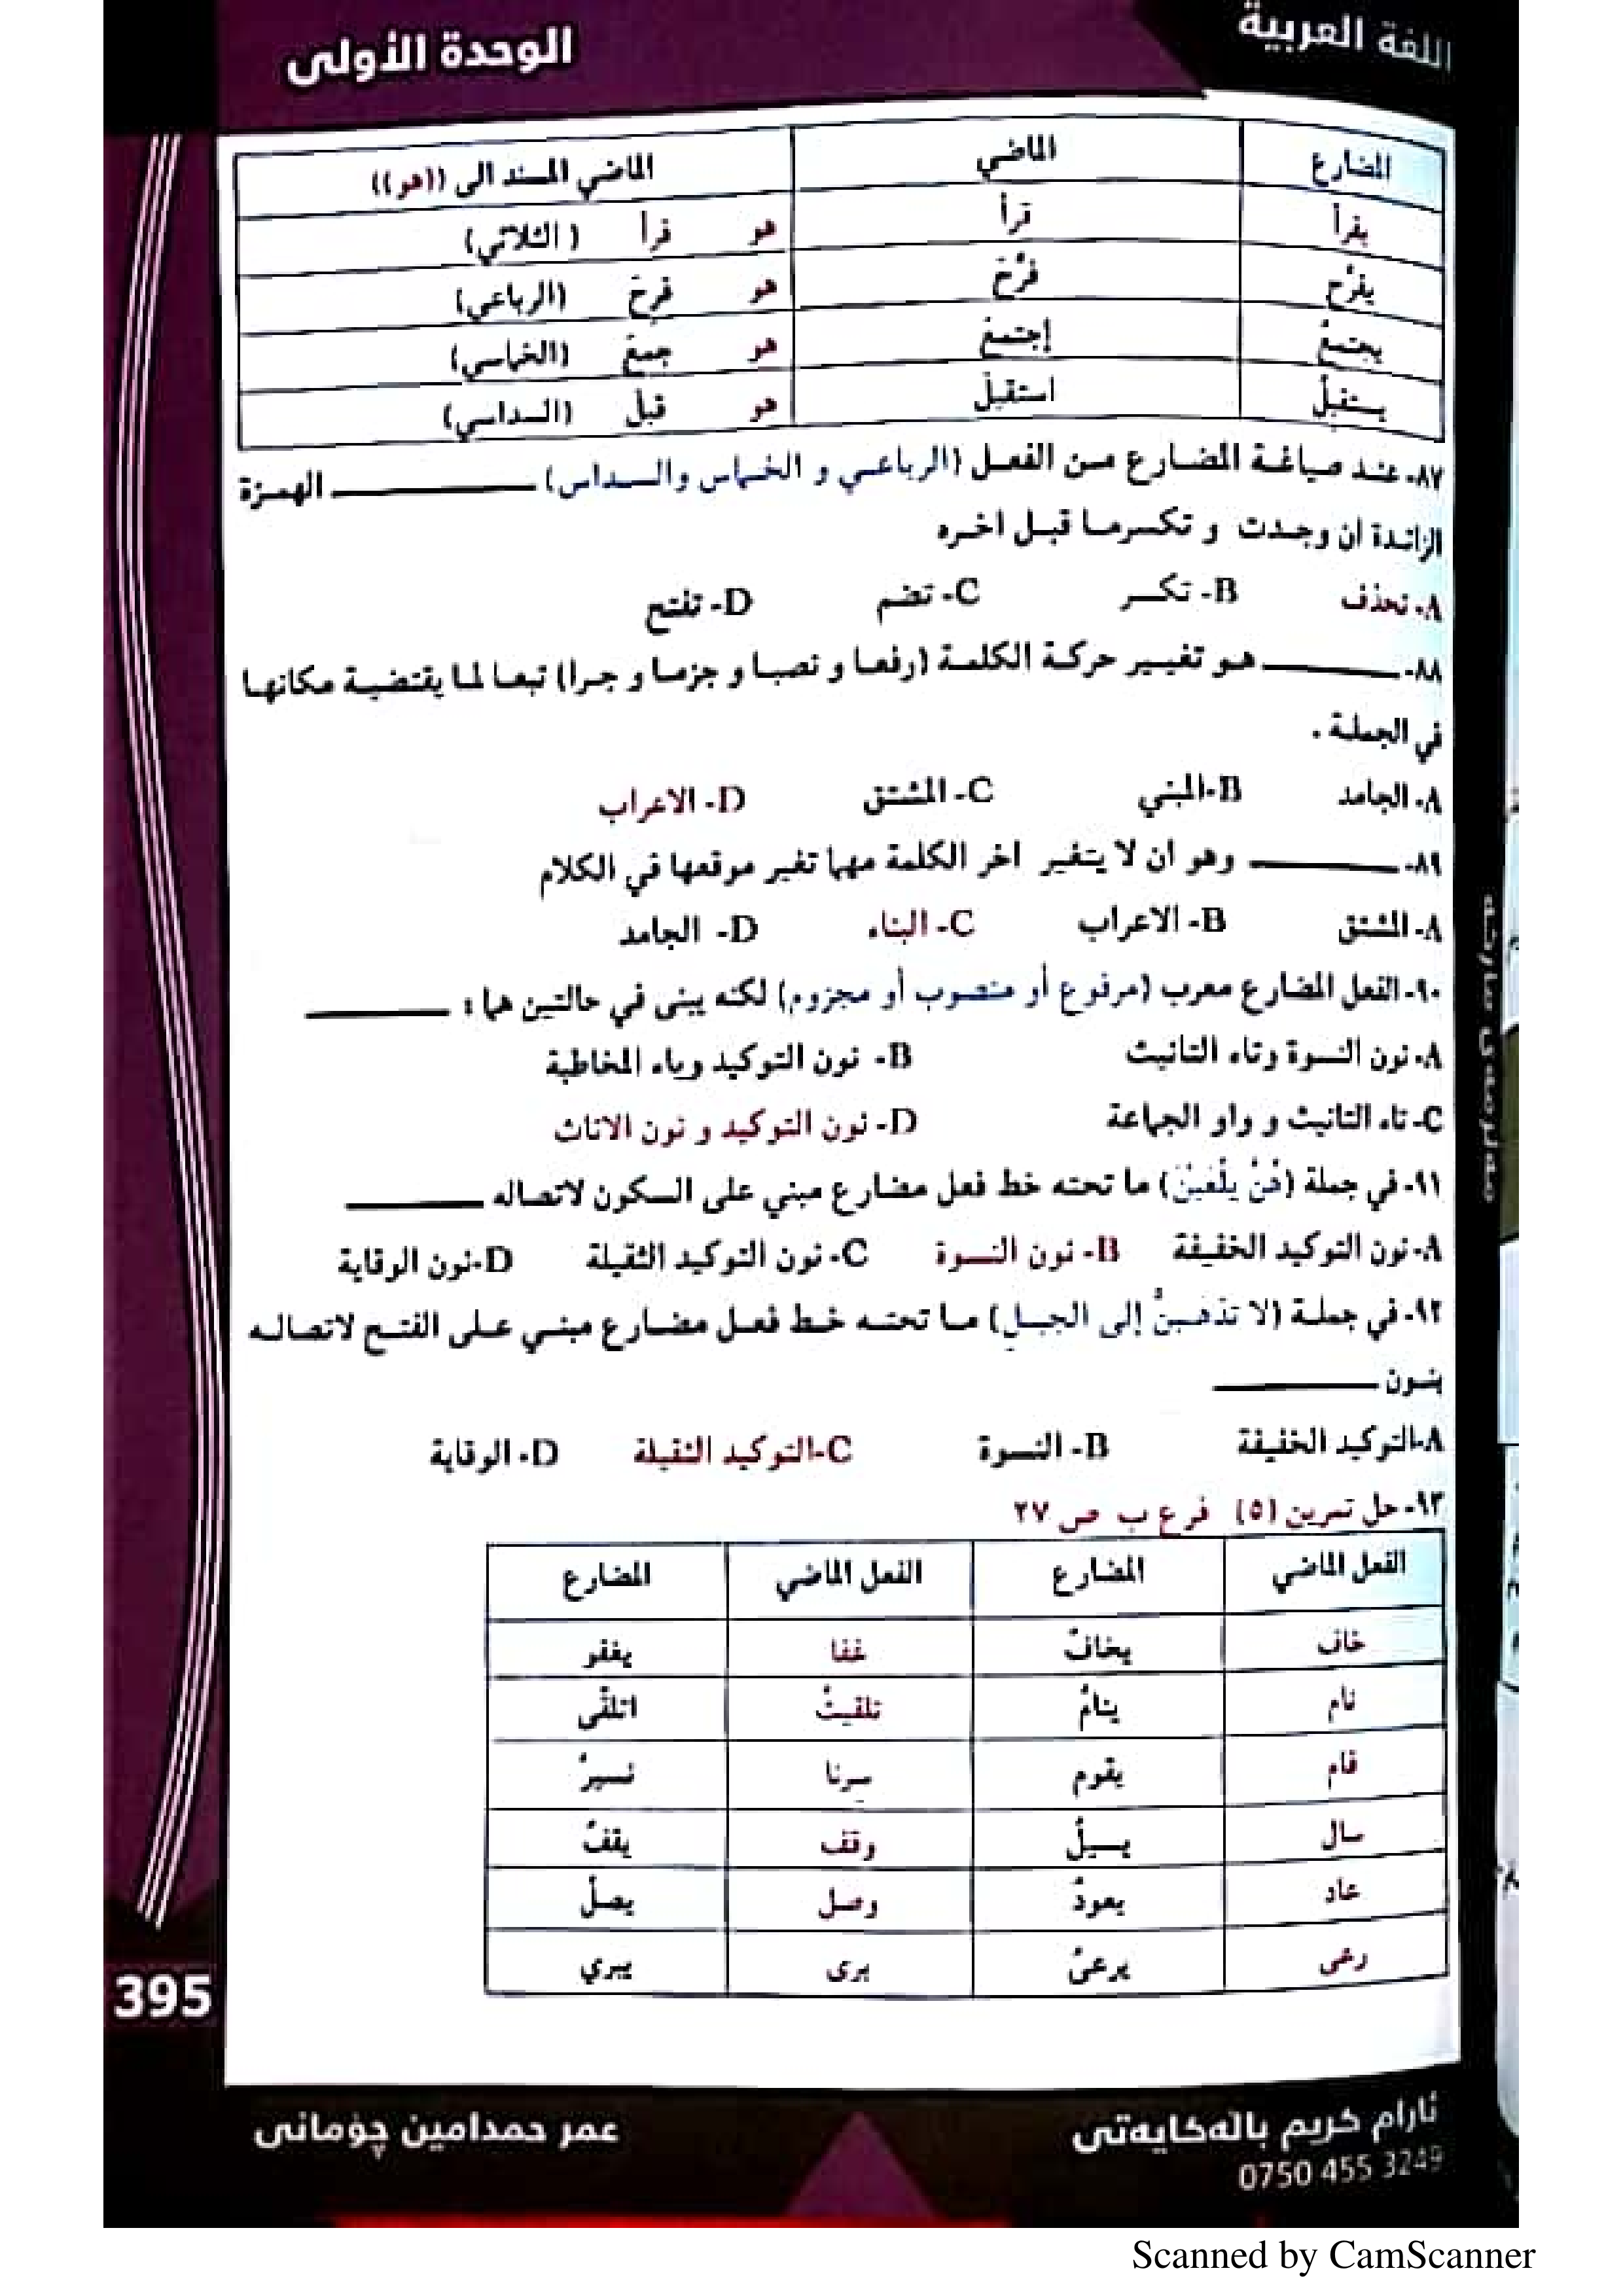 اللغة العربية
الوحدة الأولى
المضارع الماضي الماضي المسند الى ((هو))
يقرأ قرأ هو قرأ (الثلاثي)
يفرّح فرّحَ هو فرحَ (الرباعي)
يجتمعُ إجتمعَ هو جمعَ (الخماسي)
يستقبلُ استقبلَ هو قبلَ (السداسي)
٨٧- عند صياغة المضارع من الفعل (الرباعي و الخماس والسداس) ــــــــ الهمزة
الزائدة ان وجدت و تكسرما قبل اخره
A- تحذف B- تكسر C- تضم D- تفتح
٨٨- ــــــــ هو تغيير حركة الكلمة (رفعا و نصبا و جزما و جرا) تبعا لما يقتضية مكانها
في الجملة .
A- الجامد B-المبني C- المشتق D- الاعراب
٨٩- ــــــــ وهو ان لا يتغير اخر الكلمة مهما تغير موقعها في الكلام
A- المشتق B- الاعراب C- البناء D- الجامد
٩٠- الفعل المضارع معرب (مرفوع أو منصوب أو مجزوم) لكنه يبنى في حالتين هما : ــــــــ
A- نون النسوة وتاء التانيث B- نون التوكيد وياء المخاطبة
C- تاء التانيث و واو الجماعة D- نون التوكيد و نون الاناث
٩١- في جملة (هُنَّ يلْعَبْنَ) ما تحته خط فعل مضارع مبني على السكون لاتصاله ــــــــ
A- نون التوكيد الخفيفة B- نون النسوة C- نون التوكيد الثقيلة D-نون الوقاية
٩٢- في جملة (لا تذهبنَّ إلى الجبلِ) ما تحته خط فعل مضارع مبني على الفتح لاتصاله
بنون ــــــــ
A-التوكيد الخفيفة B- النسوة C-التوكيد الثقيلة D- الوقاية
٩٣- حل تمرين (٥) فرع ب ص ٢٧
الفعل الماضي المضارع الفعل الماضي المضارع
خاف يخافُ غفا يغفو
نام ينامُ تلقيتُ اتلقّى
قام يقوم سرنا نسيرُ
سال يسيلُ وقف يقفُ
عاد يعودُ وصل يصلُ
رعى يرعىُ برى يبري
395
ئارام كريم بالەكايەتى
0750 455 3249
عمر حمدامين چۆمانى
Scanned by CamScanner